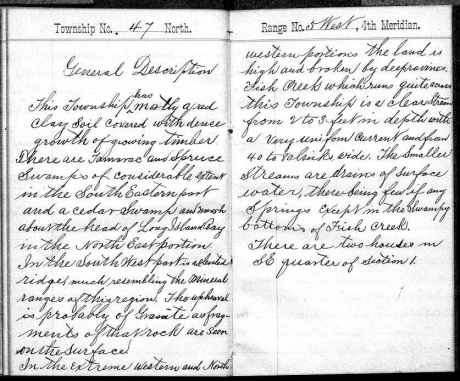 Township No. 47 North.
General Description
This Township has mostly a red
Clay Soil Covered with dence
growth of growing timber.
There are Tamrac and Spruce
Swamps of considerable extent
in the South Eastern part
and a cedar Swamp and marsh
about the head of Long Island Bay
in the North East portion
In the South West part is a
ridge, much resembling the Mineral
ranges of this region. The upheaval
is probably of Granite as frag-
ments of that rock are Seen
on the Surface
In the Extreme Western and North
Range No. 5 West, 4th Meridian.
western portions the land is
high and broken by deep ravines.
Fish Creek which runs quite across
this Township is a clear Stream
from 2 to 3 feet in depth with
a very uniform Current and from
40 to lks wide. The Smaller
Streams are drains of Surface
water, there being few if any
Springs Except in the Swampy
bottoms of Fish Creek.
There are two houses in
SE quarter of Section 1.